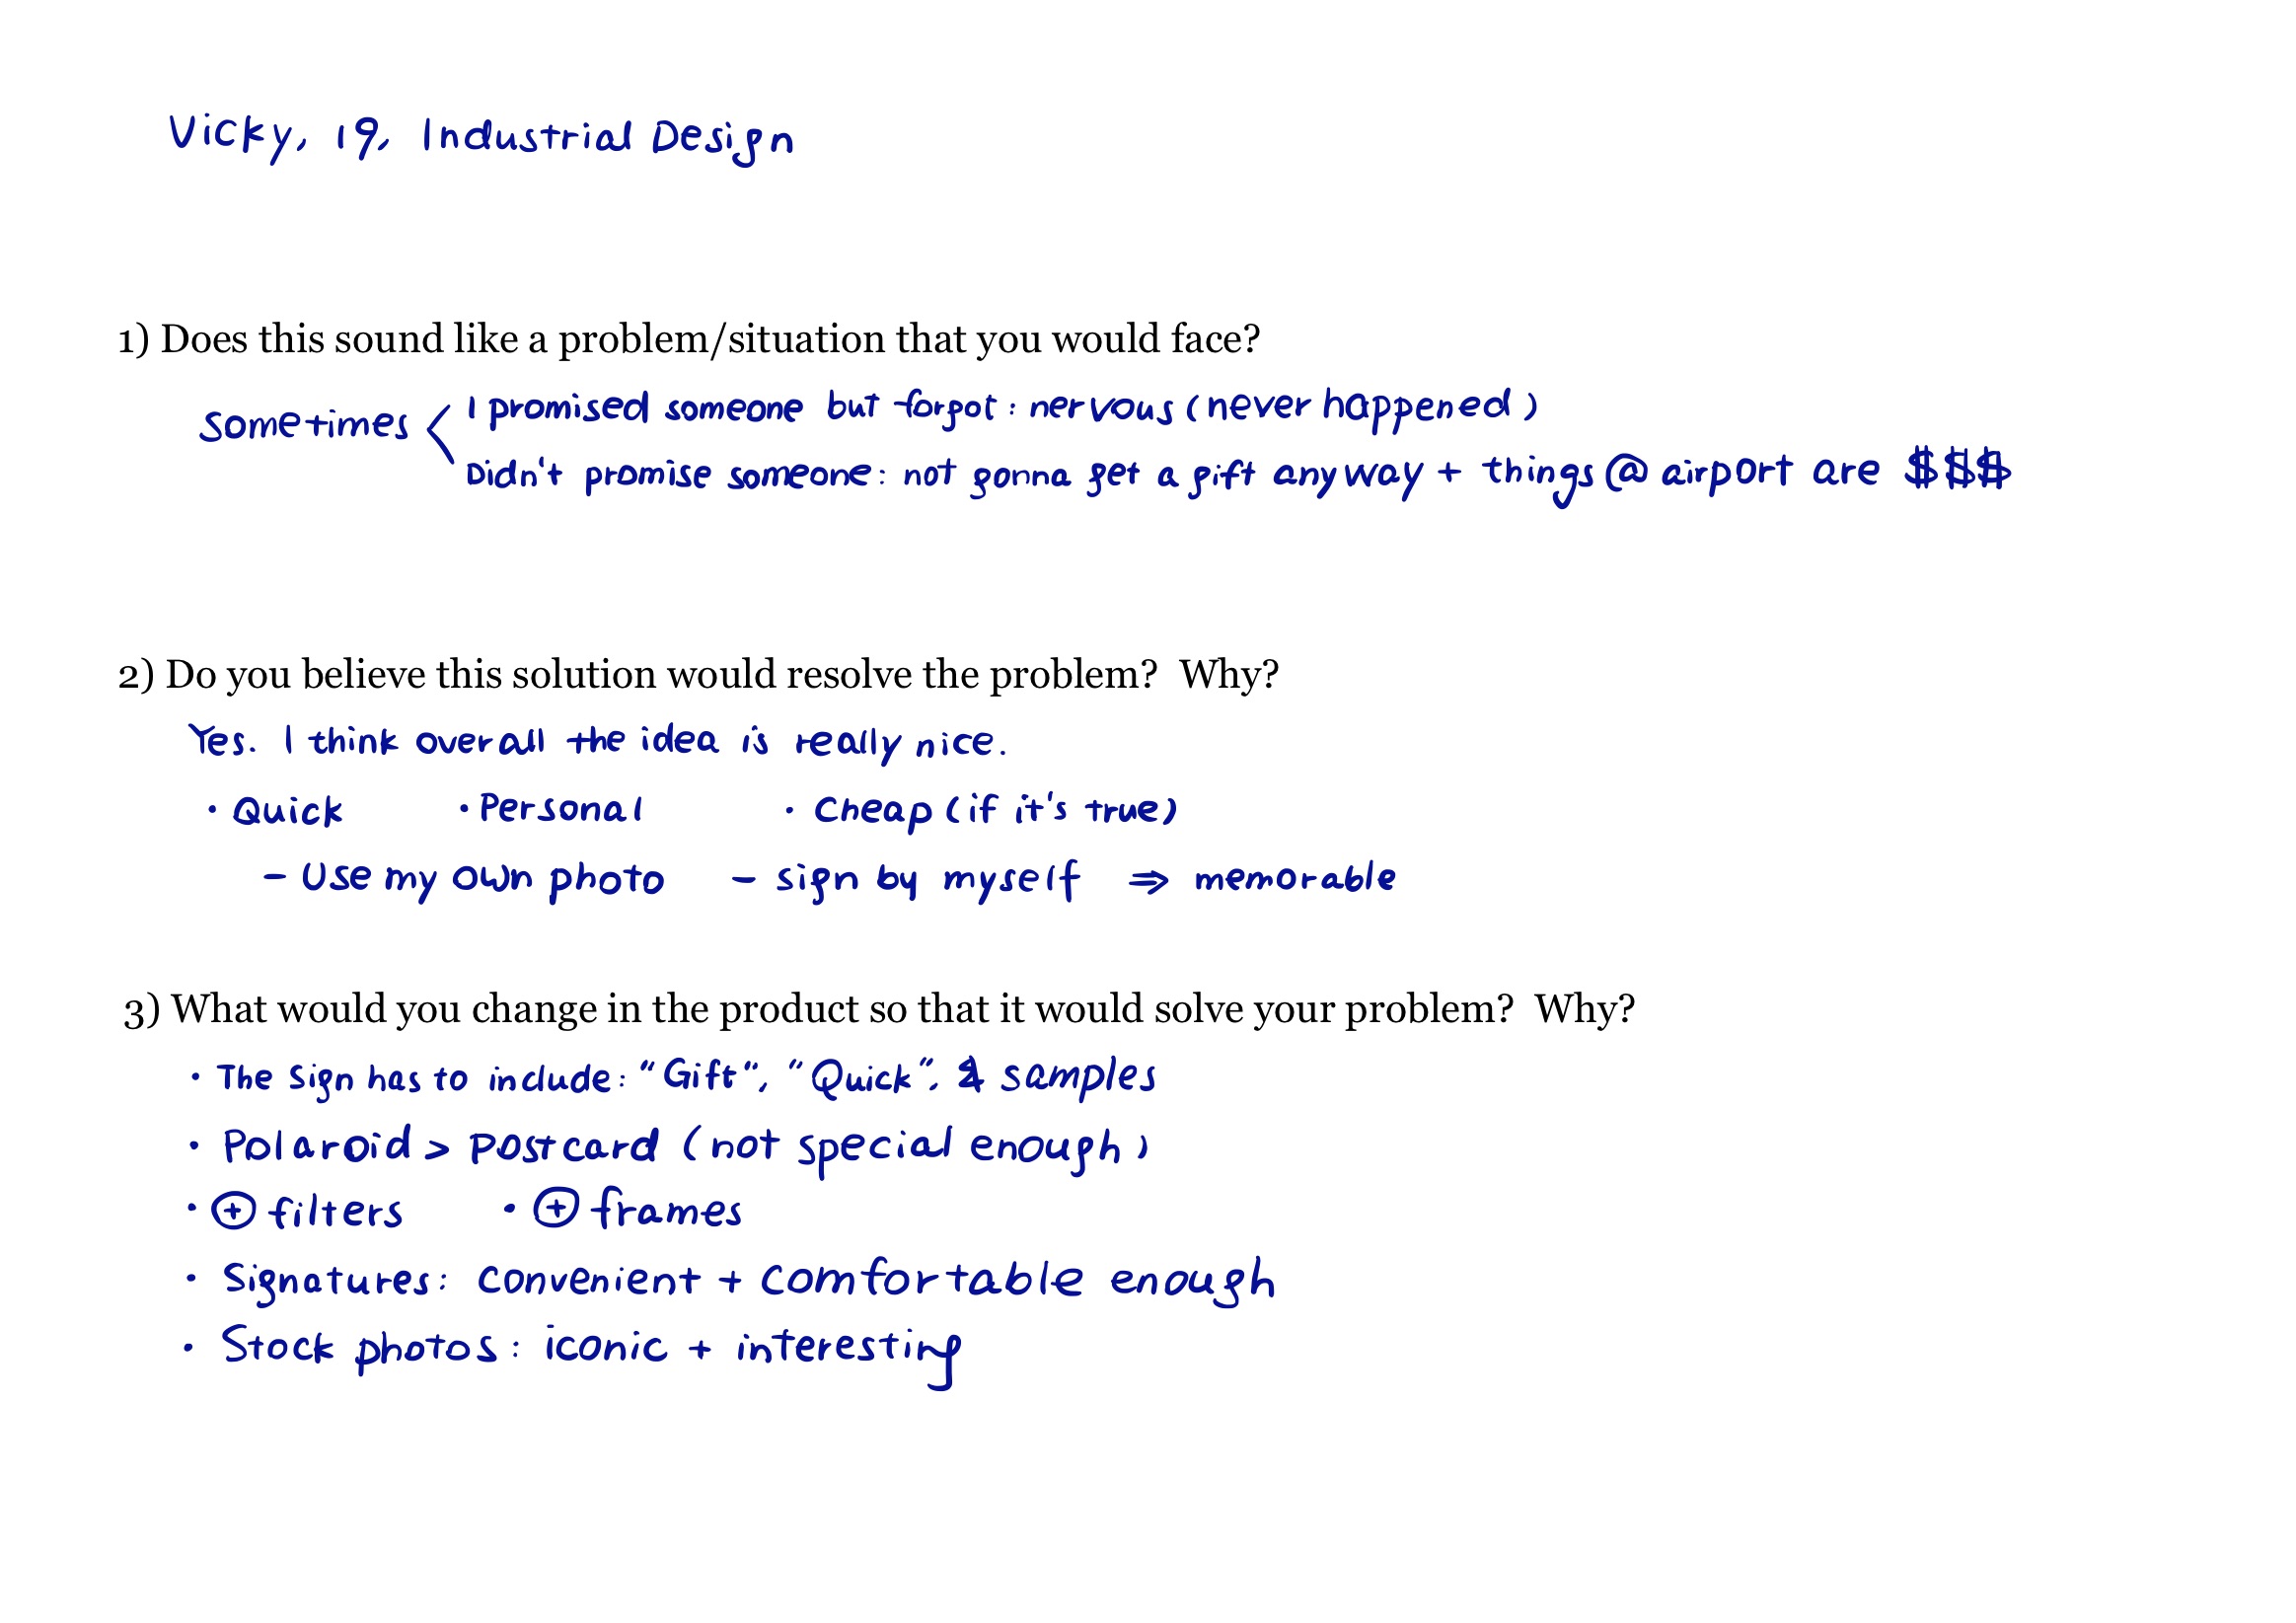 Vicky, 19, Industrial Design
1) Does this sound like a problem/situation that you would face?
Sometimes < I promised someone but forgot: nervous (never happened)
Didn't promise someone: not gonna get a gift anyway + things @ airport are $$$
2) Do you believe this solution would resolve the problem?  Why?
Yes. I think overall the idea is really nice.
• Quick • Personal • Cheap (if it's true)
– Use my own photo – sign by myself ⇒ memorable
3) What would you change in the product so that it would solve your problem?  Why?
• The Sign has to include: "Gift", "Quick", & samples
• Polaroid > Postcard (not special enough)
• ⊕ filters • ⊕ frames
• Signatures: convenient + comfortable enough
• Stock photos: iconic + interesting